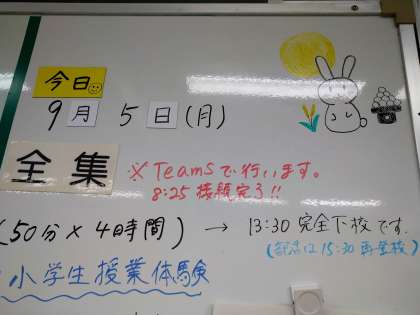 今日
9月 5日(月)
全集
※Teamsで行います。
8:25 接続完了!!
(50分×4時間) → 13:30 完全下校です.
(部活は15:30 再登校)
小学生授業体験